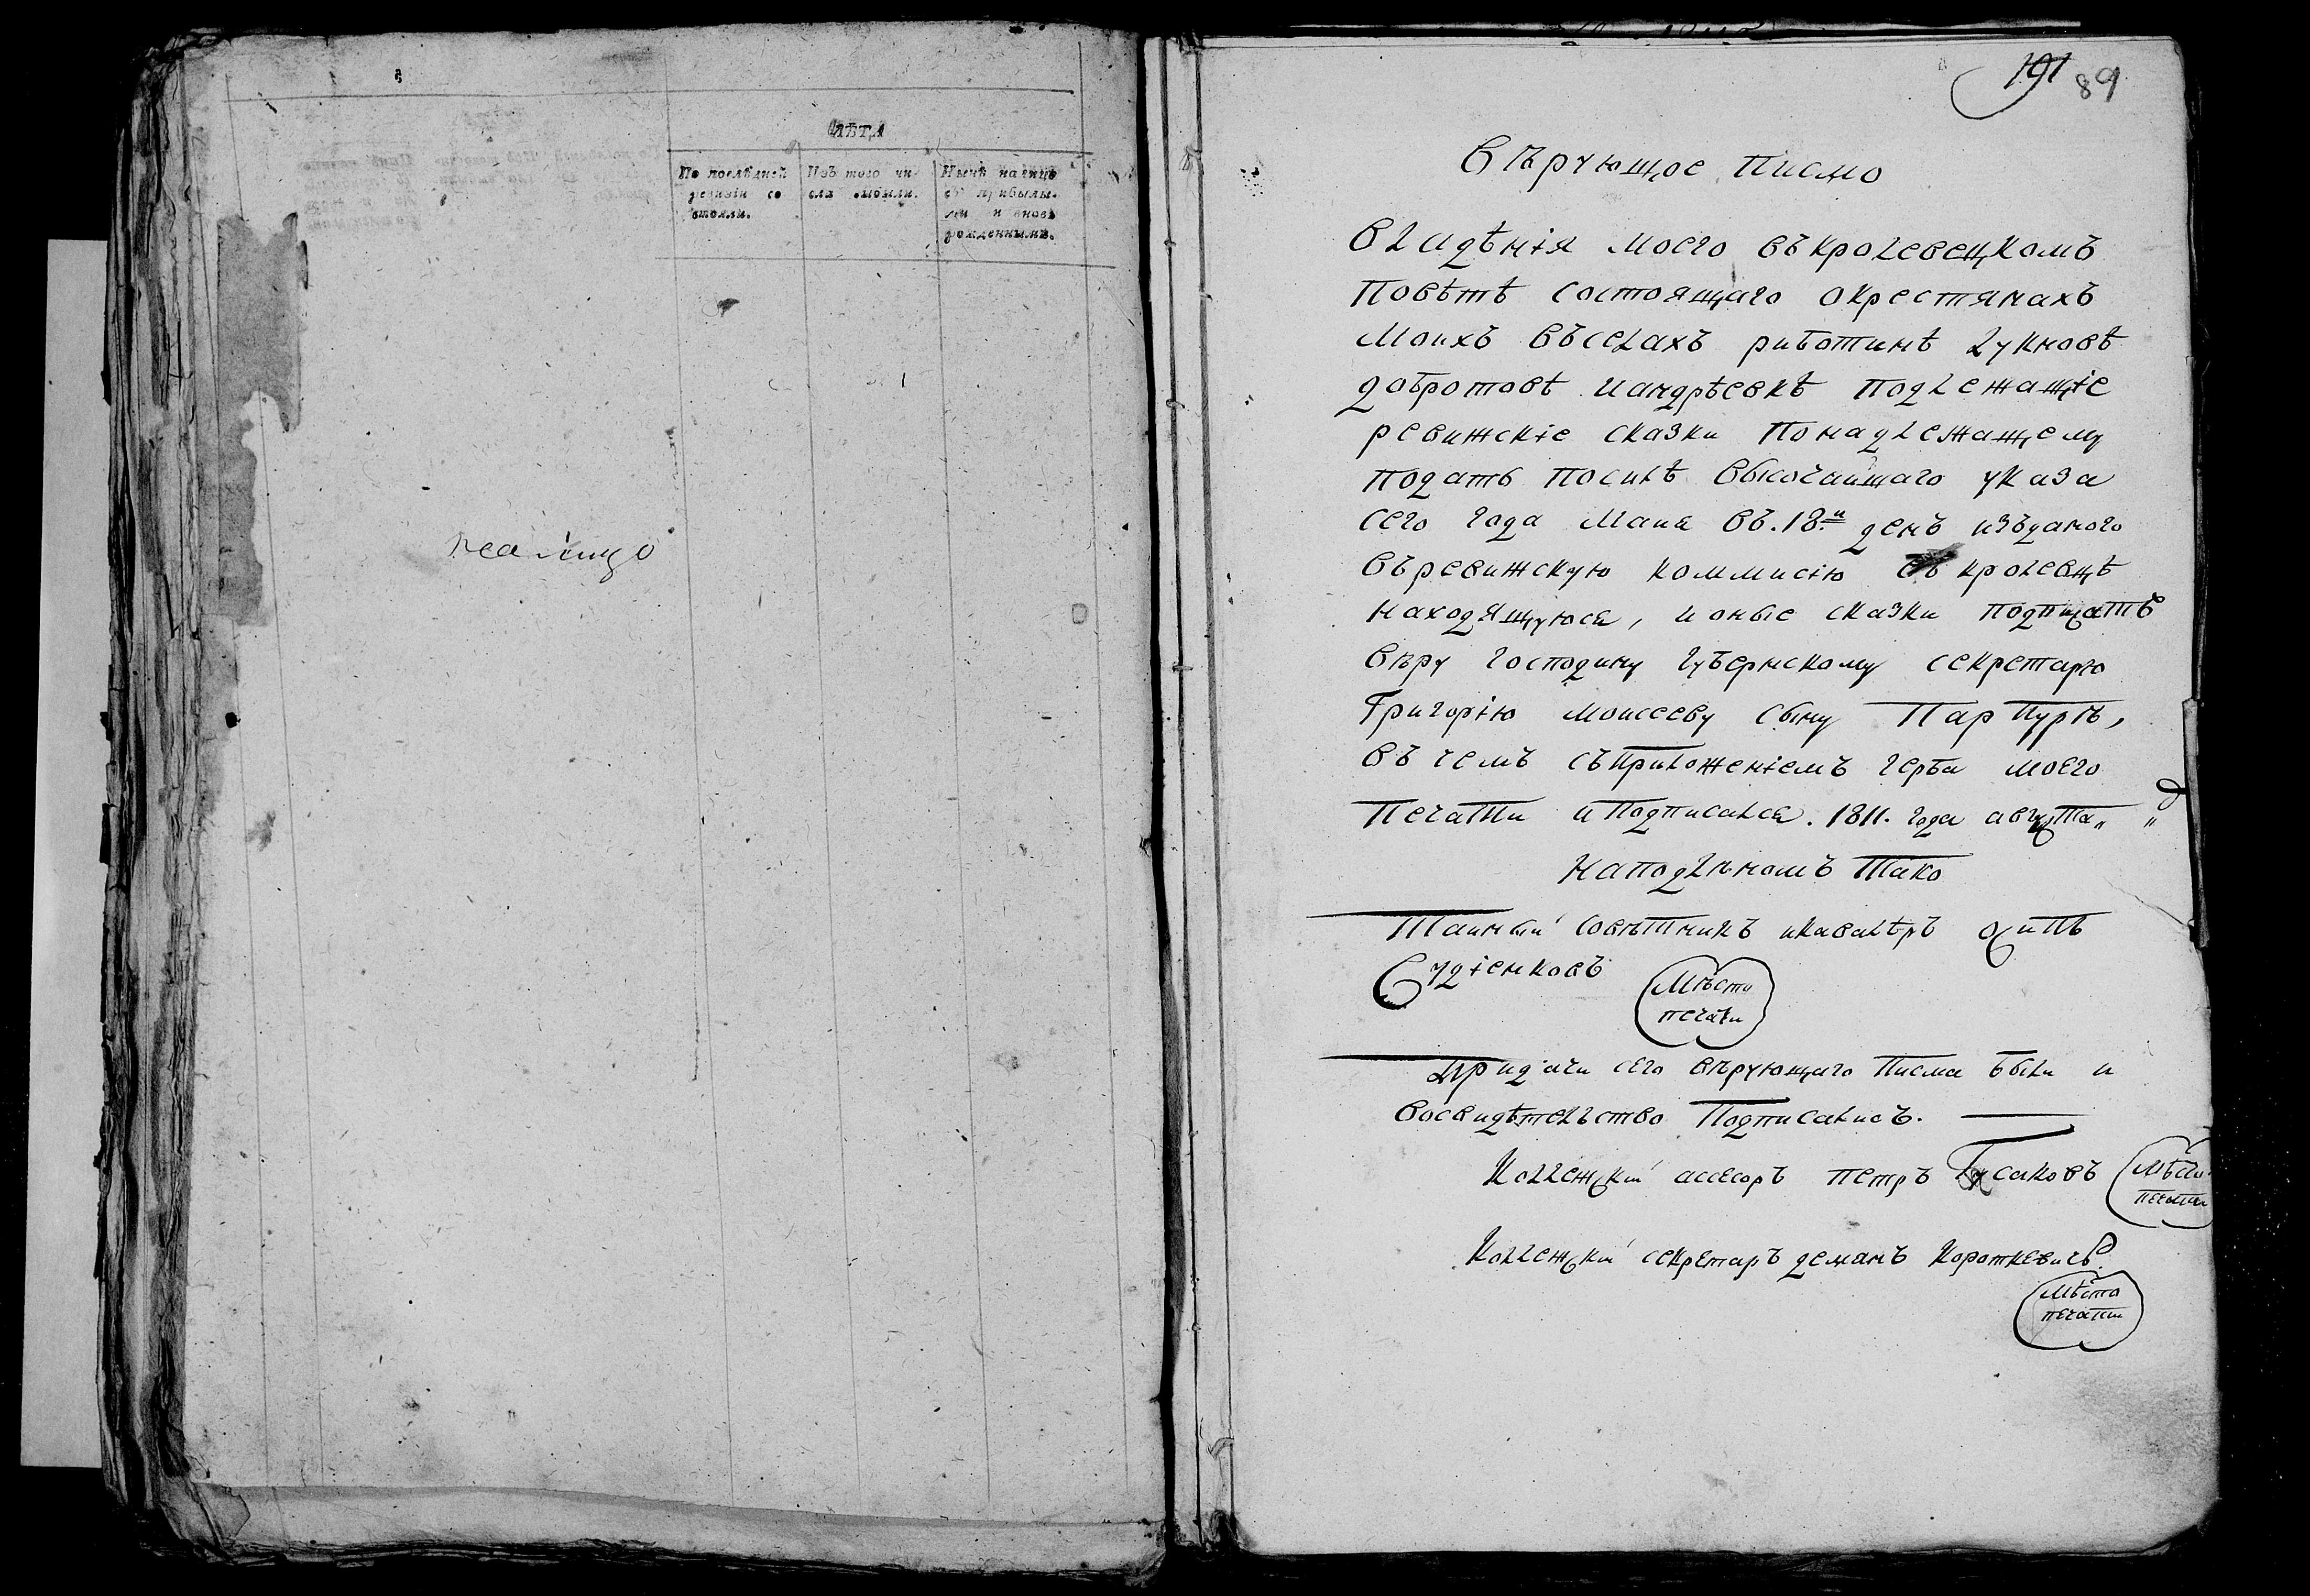 ЛѢТА
По послѣдней ревизіи состояли.
Изъ того числа выбыли.
Нынѣ налицо съ прибылыми и вновь рожденными.
191 89
Вѣрующое писмо
Владѣнія моего въ кролевецкомъ
Повѣтѣ состоящаго о крестянахъ
Моихъ въ селахъ риботинѣ лукновѣ
добротовѣ и андрѣевкѣ подлежащіе
ревижскіе сказки по надлежащему
подать по силѣ высочаишаго указа
сего года Маия въ. 18.и день изъданого
въ ревижскую коммисію въ кролевцѣ
находящуюся, и оные сказки подписать
вѣру господину губернскому секретарю
Григорію Моисееву сыну Парпурѣ,
въ чемъ съ приложеніемъ герба моего
Печати и подписался. 1811. года августа „ „ д
На подлѣномъ тако
Таиный совѣтникъ и кавалѣръ осипъ
Судіенковъ
Мѣсто
печати
При дачи сего вѣрующаго писма были и
во свидѣтельство подписались.
Коллежский ассесоръ петръ Гусаковъ
Мѣсто
печати
Коллежский секретаръ демянъ Короткевичъ
Мѣсто
печати